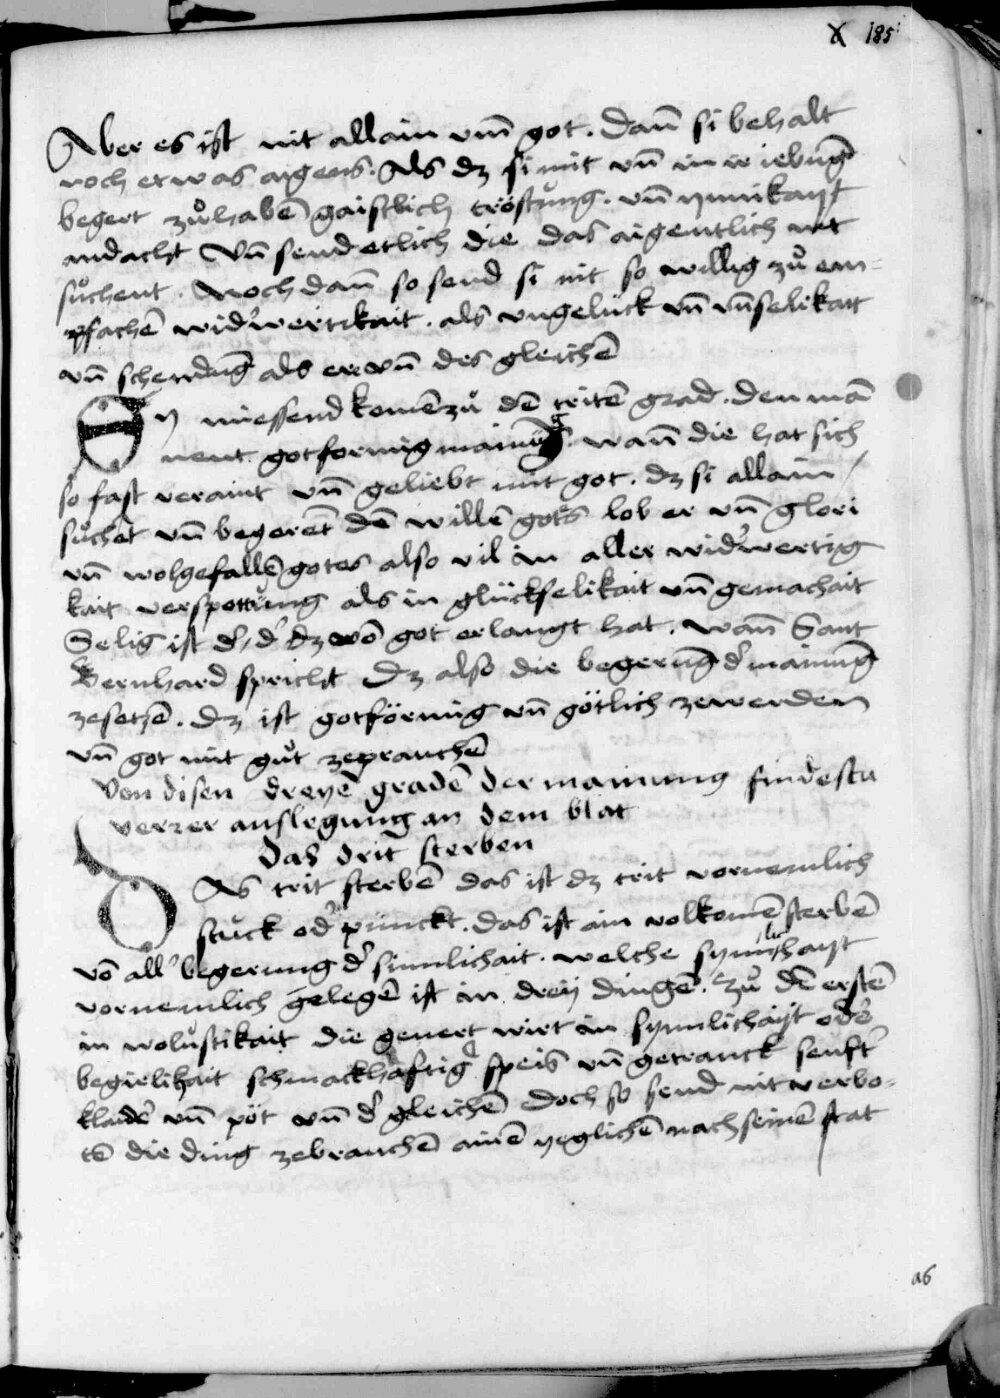 X 185
Aber es ist nit allain vm̄ got. Dan̄ si behalt
noch etwas aigens. Als dz si mit vn̄ in ir iebung
begert zůhabē gaistlich tröstung. vn̄ ynnikayt
andacht Vn̄ send etlich die das aigentlich nit
sůchent. Noch dan̄ so send si nit so willig zů em-
pfachē widerwertikait. als vngelück vn̄ vn̄selikait
vn̄ schendung als er vn̄ des gleichē
Hy miessend komē zů dē tritē grad. den man
nent gotformig mainung. wan̄ die hat sich
so fast veraint vn̄ geliebt mit got. dz si allain
sůchet vn̄ begerēt dē willē gots lob er vn̄ glori
vn̄ wolgefallē gotes also vil in aller widerwertig
kait verspottung als in glückselikait vn̄ gemachait
Selig ist der, der dz vō got erlangt hat. wan̄ Sant
Bernhard spricht Dz also die begerung der mainung
zesetzē. dz ist gotförmig vn̄ götlich zewerden
vn̄ got mit gůt zeprauchē
Von disen dreyē gradē der mainung findestu
verrer auslegung an dem blat
Das drit sterben
DAs trit sterbē das ist dz trit vornemlich
stuck oder punckt. das ist ain volkomē sterbē
vō all' begerung der sinnlichait. welche synnlichayt
vornemlich gelegē ist in dreÿ dingē. Zů dē erstē
in wolustikait die geuert wirt in synnlichayt oder
begirlichait schmackhaftig speis vn̄ getranck senft
klaider vn̄ pöt vn̄ der gleichē Doch so send nit verbo-
tē die ding zebrauchē ainē yeglichē nach seinē stat
a6